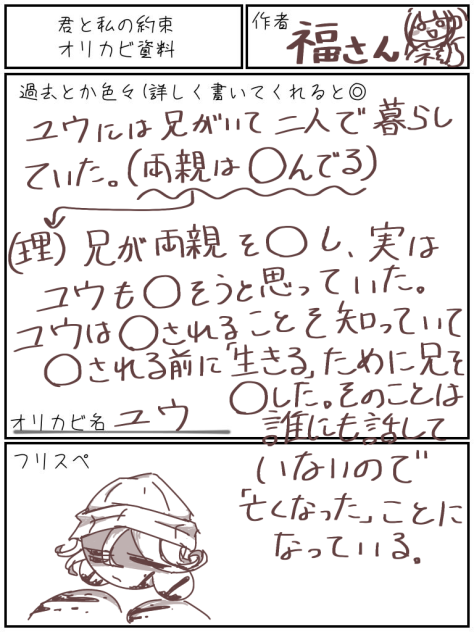 君と私の約束
オリカビ資料
作者
福さん
過去とか色々(詳しく書いてくれると◎
ユウには兄がいて二人で暮らし
ていた。(両親は〇んでる)
(理) 兄が両親を〇し、実は
ユウも〇そうと思っていた。
ユウは〇されることを知っていて
〇される前に「生きる」ために兄を
〇した。そのことは
オリカビ名 ユウ
誰にも話して
いないので
「亡くなった」ことに
なっている。
フリスペ